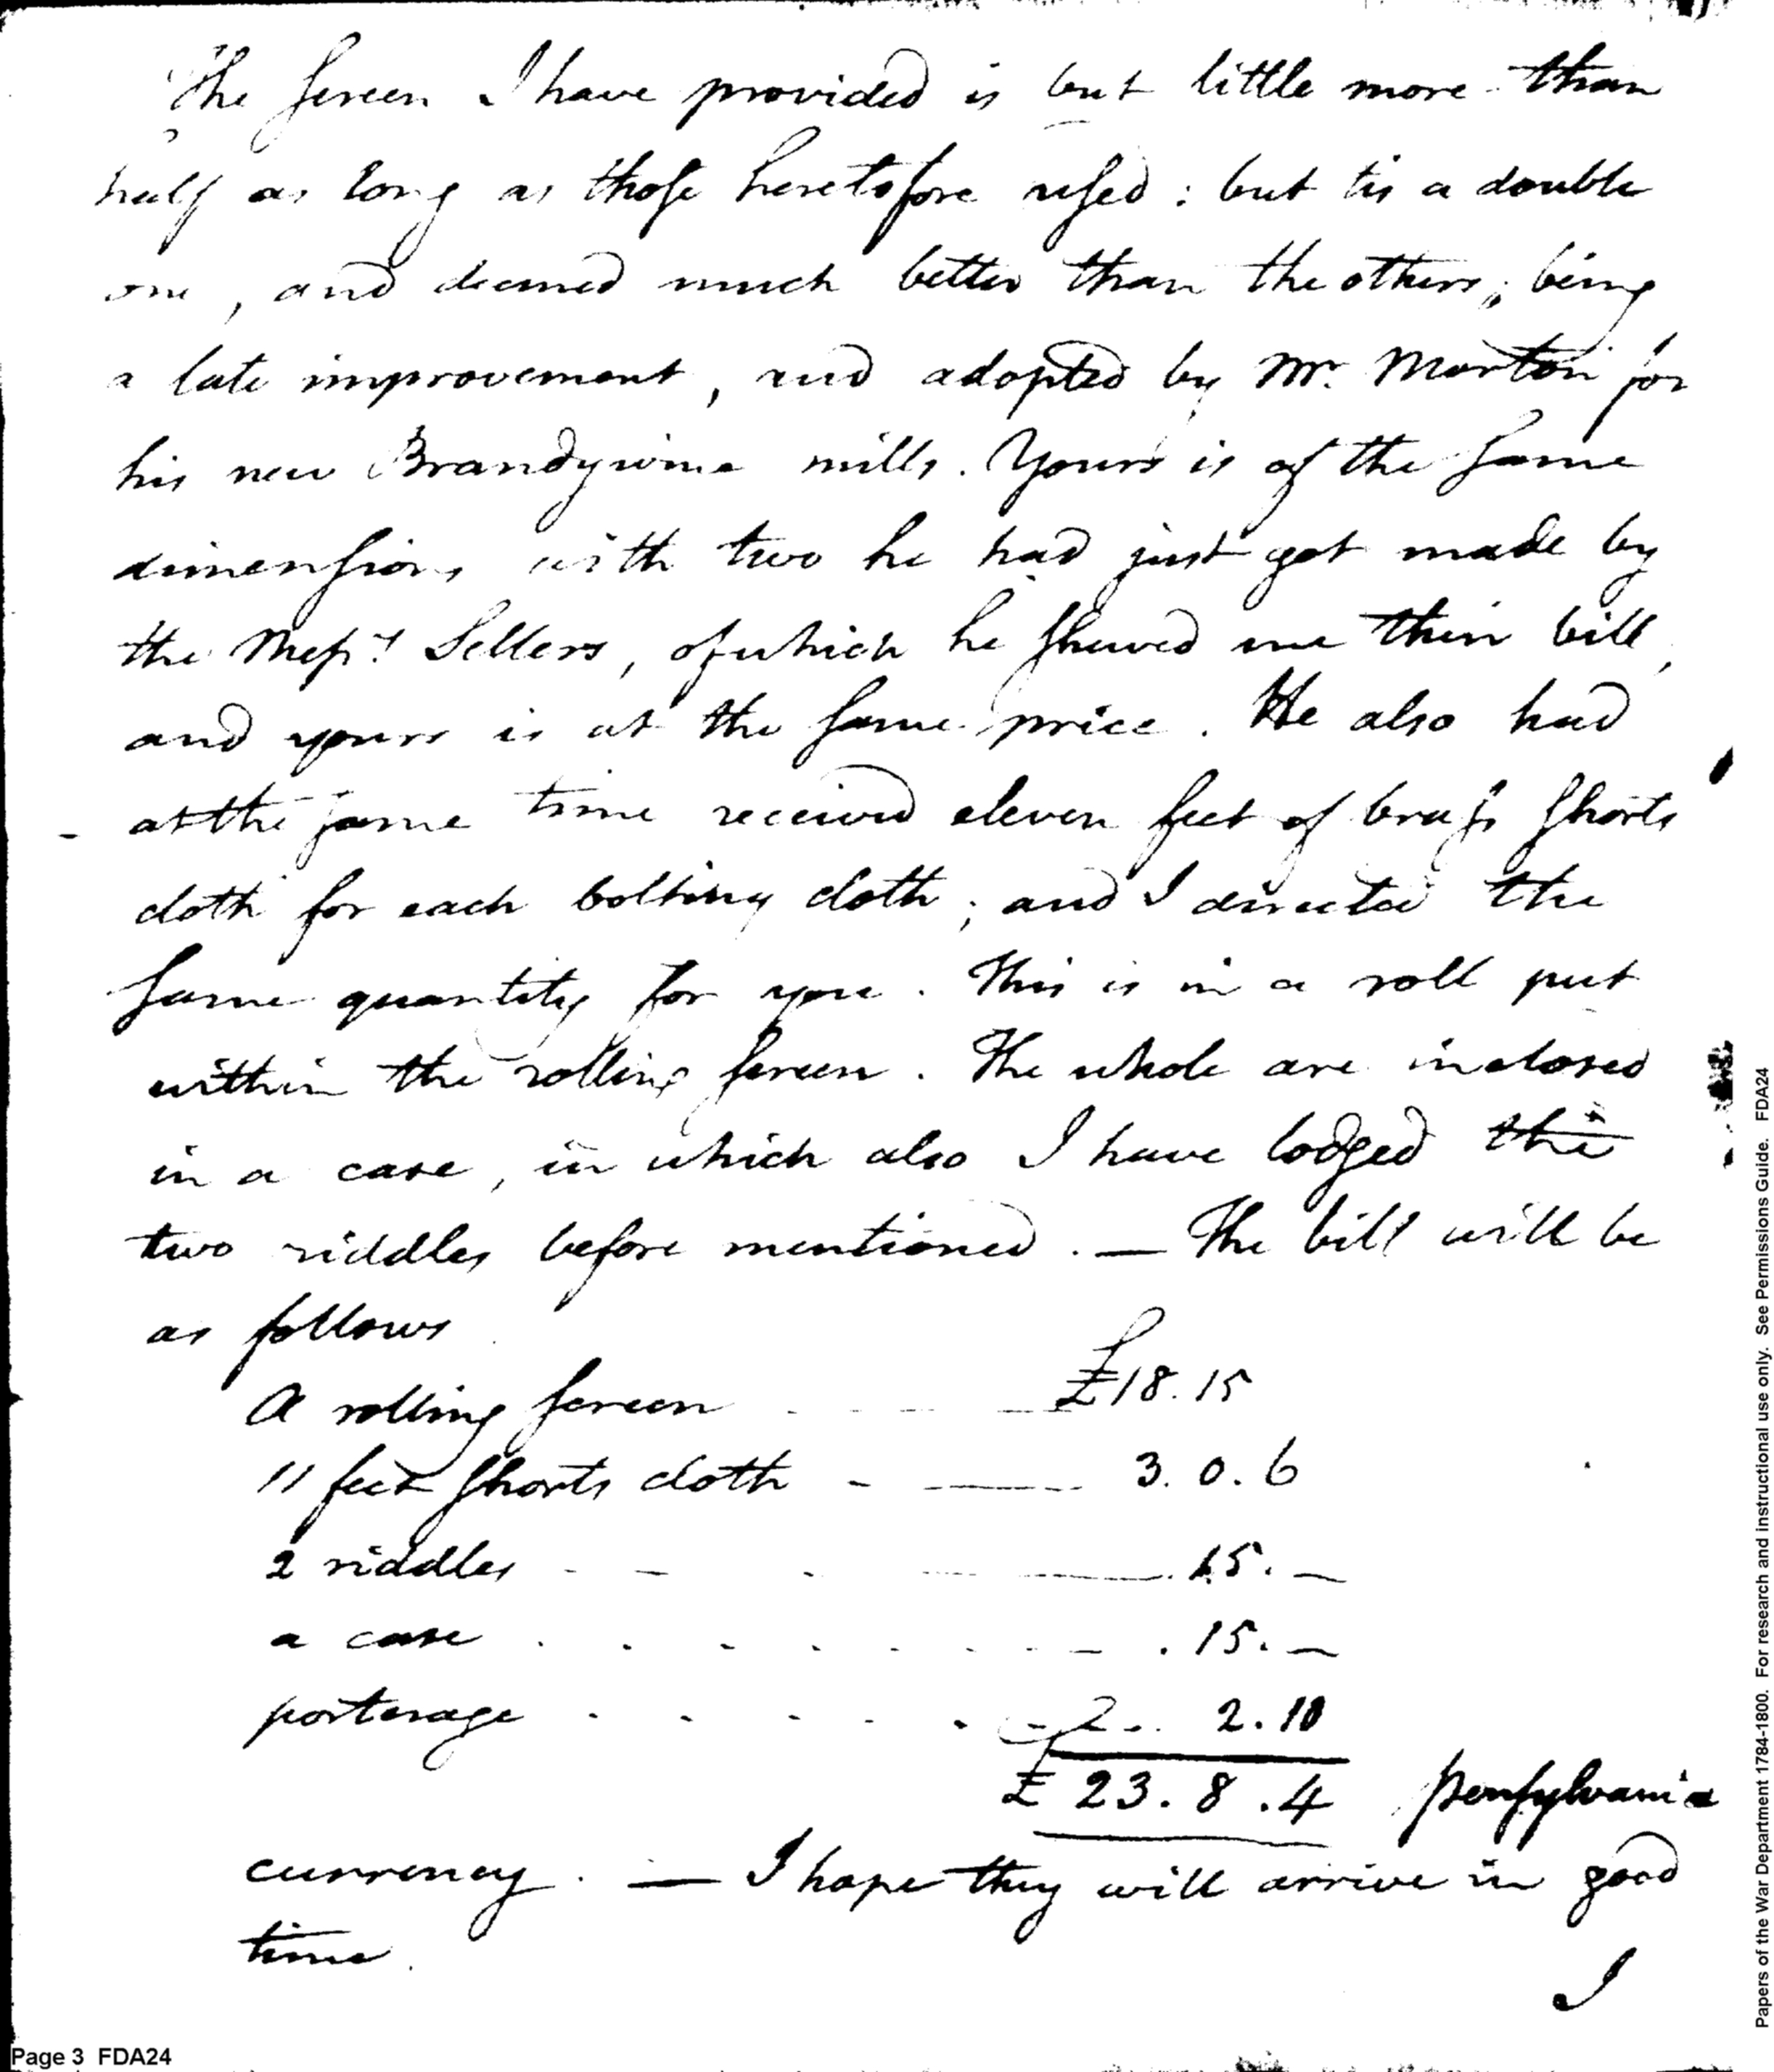 The screen I have provided is but little more than
half as long as those heretofore used: but tis a double
one, and deemed much better than the others, being
a late improvement, and adopted by Mr. Morton for
his new Brandywine mills. Yours is of the same
dimensions with two he had just got made by
the Messrs. Sellers, of which he shewed me their bill,
and yours is at the same price. He also had
at the same time received eleven feet of brass shorts
cloth for each bolting cloth; and I directed the
same quantity for you. This is in a roll put
within the rolling screen. The whole are inclosed
in a case, in which also I have lodged the
two riddles before mentioned. — The bill will be
as follows
A rolling screen - - - — £18.15
11 feet shorts cloth - — 3.0.6
2 riddles - - - — .15.—
a case . . . . . . . — .15.—
porterage . . . . . 2.10
£23.8.4 Pensylvania
currency. — I hope they will arrive in good
time.
I
Page 3 FDA24
Papers of the War Department 1784-1800. For research and instructional use only. See Permissions Guide. FDA24